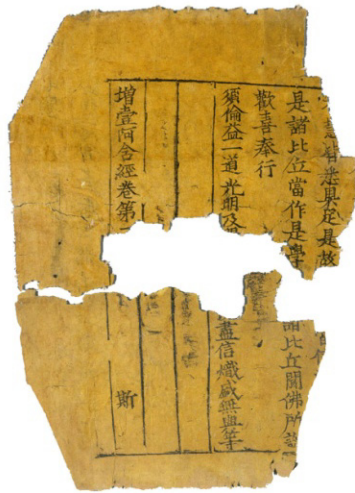 慧皆悉具足是故
是諸比丘當作是學 諸比丘聞佛所說
歡喜奉行
須倫益一道 光明及 盡信熾盛無與等
增壹阿含經卷第 斯